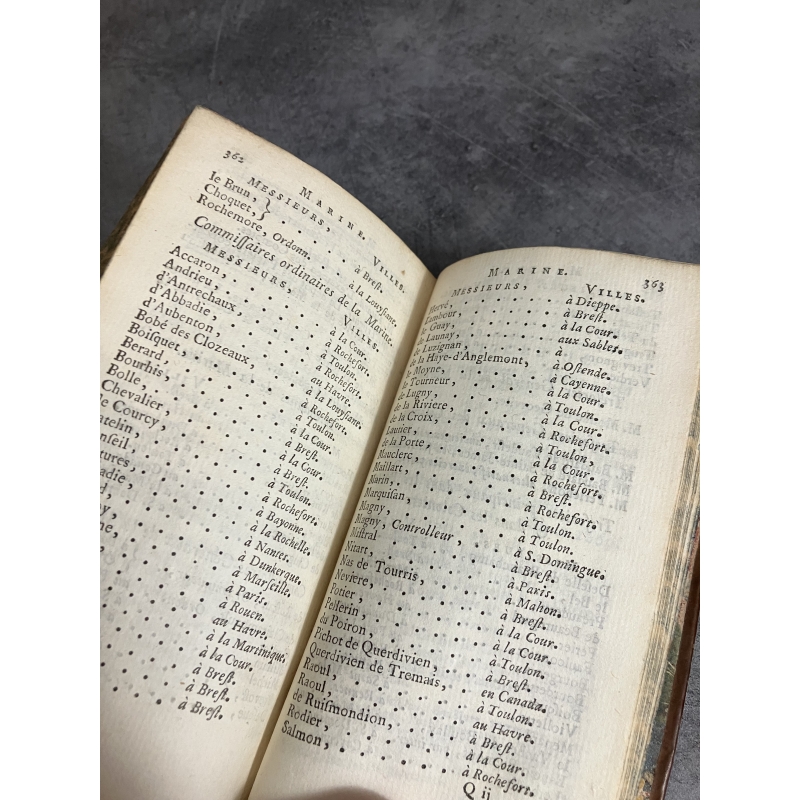 362 MARINE.
MESSIEURS, VILLES.
le Brun,
Choquet, } . . . . . à Brest.
Rochemore, Ordonn. . . . à la Louysiane.
Commissaires ordinaires de la Marine.
MESSIEURS, VILLES.
Accaron, . . . . à la Cour.
Andrieu, . . . . à Rochefort.
d'Antrechaux, . . . . à Toulon.
d'Abbadie, . . . . à Rochefort.
d'Aubenton, . . . . au Havre.
Bobé des Clozeaux, . . . . à la Louysane.
Boisquet, . . . . à Rochefort.
Berard, . . . . à Toulon.
Bourhis, . . . . à la Cour.
Bolle, . . . . à Brest.
Chevalier, . . . . à la Cour.
de Courcy, . . . . à Brest.
atelin, . . . . à Toulon.
nseil . . . . à Rochefort.
tures, . . . . à Bayonne.
adie, . . . . à la Rochelle.
d, . . . . à Nantes.
y, . . . . à Dunkerque.
ne, . . . . à Marseille.
. . . . à Paris.
. . . . à Rouen.
. . . . au Havre.
. . . . à la Martinique.
. . . . à la Cour.
. . . . à Brest.
. . . . à Brest.
. . . . à Brest.
MARINE. 363
MESSIEURS, VILLES.
Hervé, . . . . à Dieppe.
Lambour, . . . . à Brest.
le Guay, . . . . à la Cour.
de Launay, . . . . aux Sables.
de Luzignan, . . . . à
de la Haye-d'Anglemont, . . . . à Ostende.
le Moyne, . . . . à Cayenne.
le Tourneur, . . . . à la Cour.
de Lugny, . . . . à Toulon.
de la Riviere, . . . . à la Cour.
de la Croix, . . . . à Rochefort.
Lautier, . . . . à Toulon,
de la Porte, . . . . à la Cour.
Mauclerc, . . . . à Rochefort.
Maillart, . . . . à Brest.
Marin, . . . . à Rochefort.
Marquisan, . . . . à Toulon.
Magny, . . . . à Toulon.
Magny, Controlleur, . . . . à S. Domingue.
Mistral . . . . à Brest.
Nitart, . . . . à Paris.
Nas de Tourris, . . . . à Mahon.
Neviere, . . . . à Brest.
Potier, . . . . à la Cour.
Pellerin, . . . . à la Cour.
du Poiron, . . . . à Toulon.
Pichot de Querdivien, . . . . à Brest.
Querdivien de Tremais, . . . . en Canada.
Raoul, . . . . à Toulon.
Raoul, . . . . au Havre.
de Ruismondion, . . . . à Brest.
Rodier, . . . . à la Cour.
Salmon, . . . . à Rochefort.
Q ij